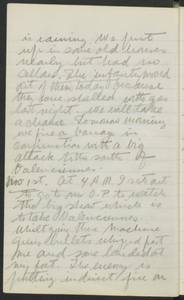 is raining. We front
up in some old houses
nearly but had no
cellars. The infantry moved
out of them today because
they were shelled with gas
last night. We will take
a chance. Tomorrow morning
we fire a barrage in
conjunction with a big
attack to the south of
Valenciennes.
Nov 1st. At 4 A.M. I set out
to an O.P. to watch
the big show which is
to take Valenciennes.
Whilst going thru machine
guns bullets whizzed past
me and some landed at
my feet. The enemy is
putting indirect fire on